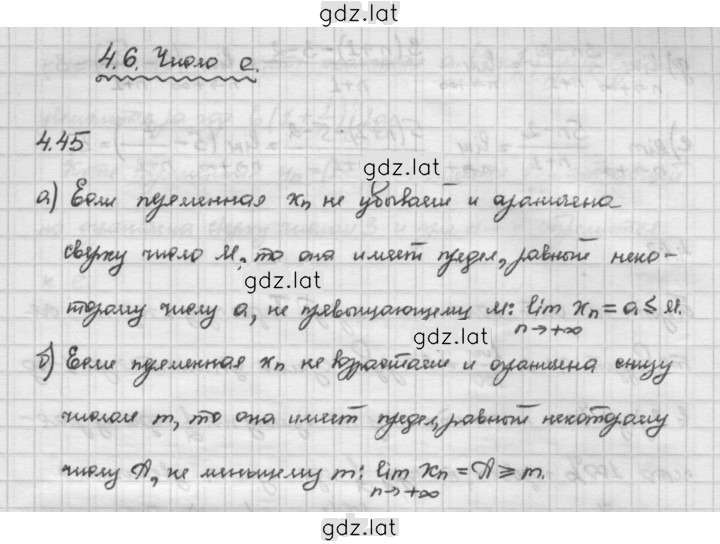 gdz.lat
4.6. Число e.
4.45
gdz.lat
а) Если переменная xₙ не убывает и ограничена
сверху число M, то она имеет предел, равный неко-
gdz.lat
торому числу a, не превышающему M: lim xₙ = a ≤ M.
n→+∞
gdz.lat
б) Если переменная xₙ не возрастает и ограничена снизу
числом m, то она имеет предел, равный некоторому
числу A, не меньшему m: lim xₙ = A ≥ m.
n→+∞
gdz.lat